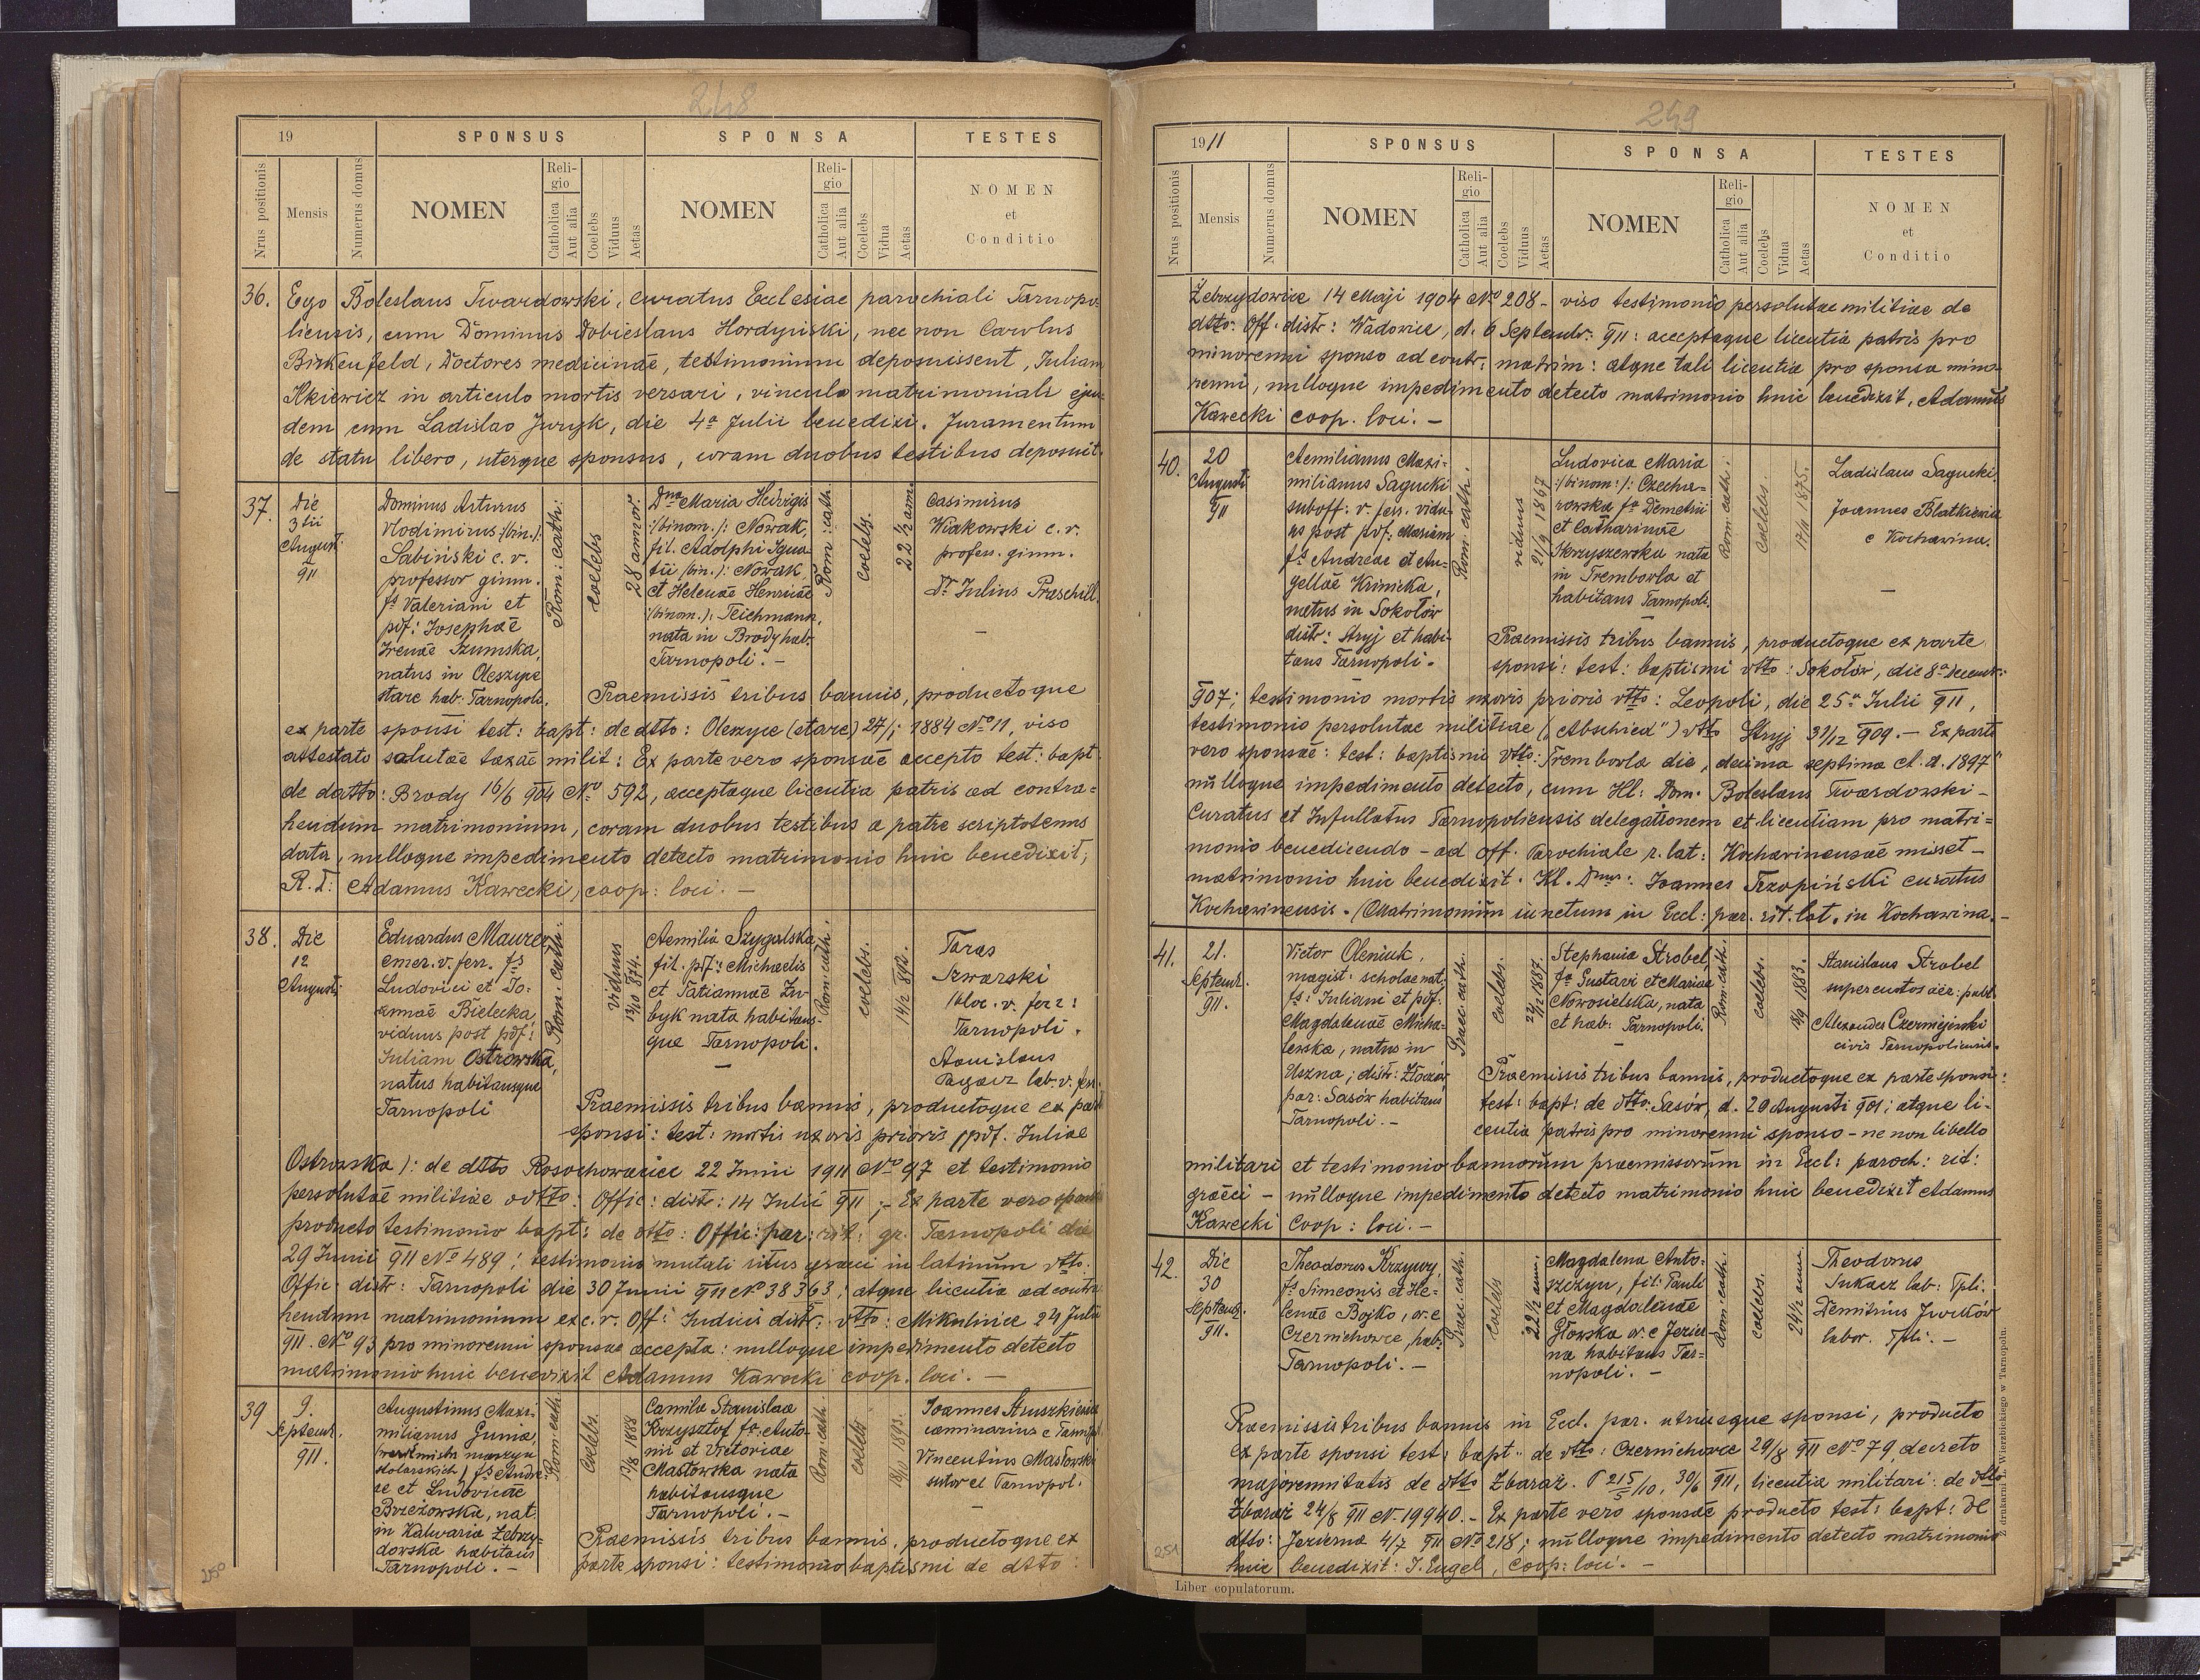 248
19
SPONSUS
SPONSA
TESTES
Nrus positionis
Mensis
Numerus domus
NOMEN
Religio
Catholica
Aut alia
Coelebs
Viduus
Aetas
NOMEN
Religio
Catholica
Aut alia
Coelebs
Vidua
Aetas
NOMEN
et
Conditio
36. Ego Boleslaus Twardowski, curatus Ecclesiae parochiali Tarnopo-
liensis, cum Dominus Dobieslaus Hordyński, nec non Carolus
Birkenfeld, Doctores medicinae, testimonium deposuissent, Juliam
Ilkiewicz in articulo mortis versari, vinculo matrimoniali ejus-
dem cum Ladislao Juryk, die 4a Julii benedixi. Juramentum
de statu libero, uterque sponsus, coram duobus testibus deposuit.
37.
Die
3tii
August.
911
Dominus Arturus
Vlodimirus /:bin.:/
Sabiński c. v.
professor gimn.
fs Valeriani et
pdf: Josephae
Irenae Szumska,
natus in Oleszyce
stare hab. Tarnopoli.
Rom: cath:
coelebs
28 annor.
Dna Maria Hedvigis
/:binom./: Nowak,
fil. Adolphi Igna
tii /bin.:/ Nowak,
et Helenae Henricae
/:binom.:/ Teichmann,
nata in Brody hab.
Tarnopoli. –
Rom: cath.
coelebs.
22 ½ ann.
Casimirus
Wiakowski c. v.
profess. gimn.
Dr Julius Praschill.
–
Praemissis tribus bannis, productoque
ex parte sponsi test: bapt: de dtto: Oleszyce (stare) 27/1 1884 No 11, viso
attestato salutae taxae milit: Ex parte vero sponsae accepto test: bapt.
de datto: Brody 16/6 904 No 592, acceptaque licentia patris ad contra-
hendum matrimonium, coram duobus testibus a patre scriptotenus
data, nulloque impedimento detecto matrimonio huic benedixit,
R. D: Adamus Kawecki, coop: loci. –
38.
Die
12
Augusti
Eduardus Maurer
emer. v. ferr. fs
Ludovici et Jo-
annae Bielecka
viduus post pdf:
Juliam Ostrowska,
natus habitansque
Tarnopoli
Rom. cath.
Viduus
13/10 874.
Aemilia Szygalska
fil. pdf: Michaelis
et Tatiannae Zu-
byk nata habitans-
que Tarnopoli.
–
Rom: cath.
coelebs.
14/2 892.
Taras
Szwarski
v. ferr:
Tarnopoli.
Stanislaus
lab. v. ferr.
Praemissis tribus bannis, productoque ex parte
sponsi: test: mortis uxoris prioris /pdf. Juliae
Ostrowska): de dtto Rosochowaciec 22 Junii 1911 No 97 et testimonio
persolutae militiae ddtto: Offic: distr: 14 Julii 911; – Ex parte vero sponsae
producto testimonio bapt: de dtto: Offic: par: rit: gr. Tarnopoli die
29 Junii 911 No 489; testimonio mutati ritus graeci in latinum dtto:
Offic: distr: Tarnopoli die 30 Junii 911 No 38363; atque licentia ad contra
hendum matrimonium ex c. r. Off: Judicii distr: dtto: Mikulińce 24 Julii
911. No 93 pro minorenni sponsae accepta: nulloque impedimento detecto
matrimonio huic benedixit Adamus Kawecki coop. loci. –
39
9.
Septembr.
911.
Augustinus Maxi-
milianus Gunia,
maszyn
stolarskich / fs Andre-
ae et Ludovicae
Brzeżowska, nat.
in Kalwaria Zebrzy-
dowska habitans
Tarnopoli. –
Rom: cath
Coelebs.
13/8 1888
Camila Stanislaa
Krzysztof fa: Anto-
nii et Victoriae
Masłowska nata
habitansque
Tarnopoli. –
Rom: cath.
coelebs
18/11 1893.
Joannes Struszkiewicz
caeminarius e Tarnopol
Vincentius Masłowski
sutor et Tarnopol.
–
Praemissis tribus bannis, productoque ex
parte sponsi: testimonio baptismi de dtto:
250
249
1911
SPONSUS
SPONSA
TESTES
Nrus positionis
Mensis
Numerus domus
NOMEN
Religio
Catholica
Aut alia
Coelebs
Viduus
Aetas
NOMEN
Religio
Catholica
Aut alia
Coelebs
Vidua
Aetas
NOMEN
et
Conditio
Zebrzydowice 14 Maji 1904 No 208 – viso testimonio persolutae militiae de
dtto: Off. distr: Wadowice, d. 6 Septembr: 911: acceptaque licentia patris pro
minorenni sponso ad contr. matrim: atque tali licentia pro sponsa mino-
renni, nulloque impedimento detecto matrimonio huic benedixit, Adamus
Kawecki coop. loci. –
40.
20
Augusti
911
Aemilianus Maxi-
milianus Sagucki
suboff: v. ferr. vidu-
us post pdf: Mariam
fs Andreae et An-
gellae Krinicka,
natus in Sokołów
distr: Stryj et habi-
tans Tarnopoli.
Rom. cath:
viduus
21/9 1867
Ludovica Maria
/:binom:/: Czecha-
rowska fa Demetrii
et Catharinae
Skrzyszewska nata
in Trembowla et
habitans Tarnopoli.
Rom: cath:
Coelebs.
17/11 1875.
Ladislaus Sagucki,
Joannes Blatkiewicz
e Kochawina.
–
Praemissis tribus bannis, productoque ex parte
sponsi: test: baptismi dtto: Sokołów, die 8a Decembr:
907; testimonio mortis uxoris prioris dtto: Leopoli, die 25a Julii 911,
testimonio persolutae militiae („Abschied") dtto Stryj 31/12 909. – Ex parte
vero sponsae: test: baptismi dtto: Trembowla die, decima septima A. d. 1897"
nulloque impedimento detecto, cum Hl: Dom. Boleslaus Twardowski –
Curatus et Infullatus Tarnopoliensis delegationem et licentiam pro matri-
monio benedicendo – ad off. Parochiale r. lat: Kochavinensae misset –
matrimonio huic benedixit. Hl. Dnus: Joannes Trzopiński curatus
Kochawinensis. (Matrimonium iunctum in Eccl: par. rit. lat. in Kochawina. –
41.
21.
Septembr.
911.
Victor Oleniuk,
magist: scholae nat,
fs: Juliani et pdf:
Magdalenae Micha-
lewska, natus in
Uszna; distr: Złoczów
par: Sasów habitans
Tarnopoli. –
Graec. cath.
Coelebs.
27/12 1887.
Stephania Strobel,
fa Gustavi et Mariae
Nowosielska, nata
et hab: Tarnopoli.
–
Rom. cath.
coelebs.
18/9 1883.
Stanislaus Strobel
supercustos aer: publ.
Alexander Czerniejewski
civis Tarnopoliensis.
Praemissis tribus bannis, productoque ex parte sponsi:
test: bapt: de dtto: Sasów, d. 20 Augusti 901; atque li-
centia patris pro minorenni sponso – ne non libello
militari et testimonio bannorum praemissorum in Eccl: paroch: rit:
graeci – nulloque impedimento detecto matrimonio huic benedixit Adamus
Kawecki Coop: loci. –
42.
Die
30
Septembr.
911.
Theodorus Krzywy,
fs Simeonis et He-
lenae Bojko, or. e
Czernichowce, hab:
Tarnopoli. –
Graec. cath.
Coelebs
22 ½ ann:
Magdalena Anto-
szczyn, fil: Pauli
et Magdalenae
Głowska or. e Jezier
na habitans Tar-
nopoli. –
Rom: cath.
coelebs.
24 ½ ann.
Theodorus
Tukacz lab: Tpli.
Demitrius Jwrków
labor. Tpli. –
Praemissis tribus bannis in Eccl. par. utriusque sponsi, producto
ex parte sponsi test: bapt: de dtto: Czernichowce 29/8 911 No 79, decreto
majorennitatis de dtto Zbaraż. P 215/10, 30/6 911, licentia militari: de dtto
Zbaraż 24/8 911 N. 19940. – Ex parte vero sponsae producto test: bapt: de
dtto: Jezierna 4/7 911 No 218; nulloque impedimento detecto matrimonio
huic benedixit: J. Engel, Coop: loci. –
251
Liber copulatorum.
Z drukarni L. Wierzbickiego w Tarnopolu.